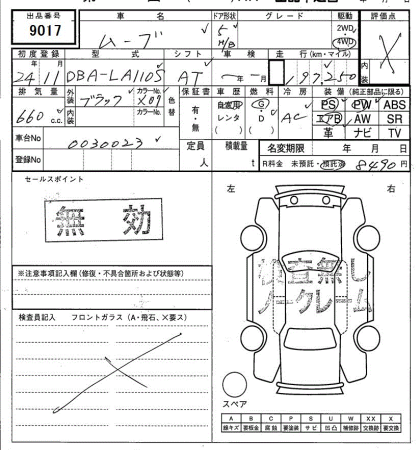 出品番号 車名 ドア形状 グレード 駆動 評価点
9017 ムーブ 5 H/B 2WD 4WD 内装
初度登録 型式 シフト 車検 走行(km・マイル)
24年11月 DBA-LA110S AT 年 月 197,250
排気量 外装 カラーNo. 色替 保証書 車歴 燃料 冷房 装備(純正部品に限る)
660c.c. ブラック X07 内装 カラーNo. 有・無 自家用 レンタ G・D AC PS PW ABS
エアB AW SR
革 ナビ TV
車台No 0030023 定員 人 積載量 t 名変期限 年 月 日
登録No R料金 未預託・預託済 8490円
セールスポイント 左 右
無効
検査無し
ノークレーム
※注意事項記入欄(修復・不具合箇所および状態等)
検査員記入 フロントガラス(A・飛石、×要ス)
スペア
A B C P S U W X XX X
線キズ 要板金 腐蝕 要塗装 サビ 凹凸 補修跡 交換跡 要交換